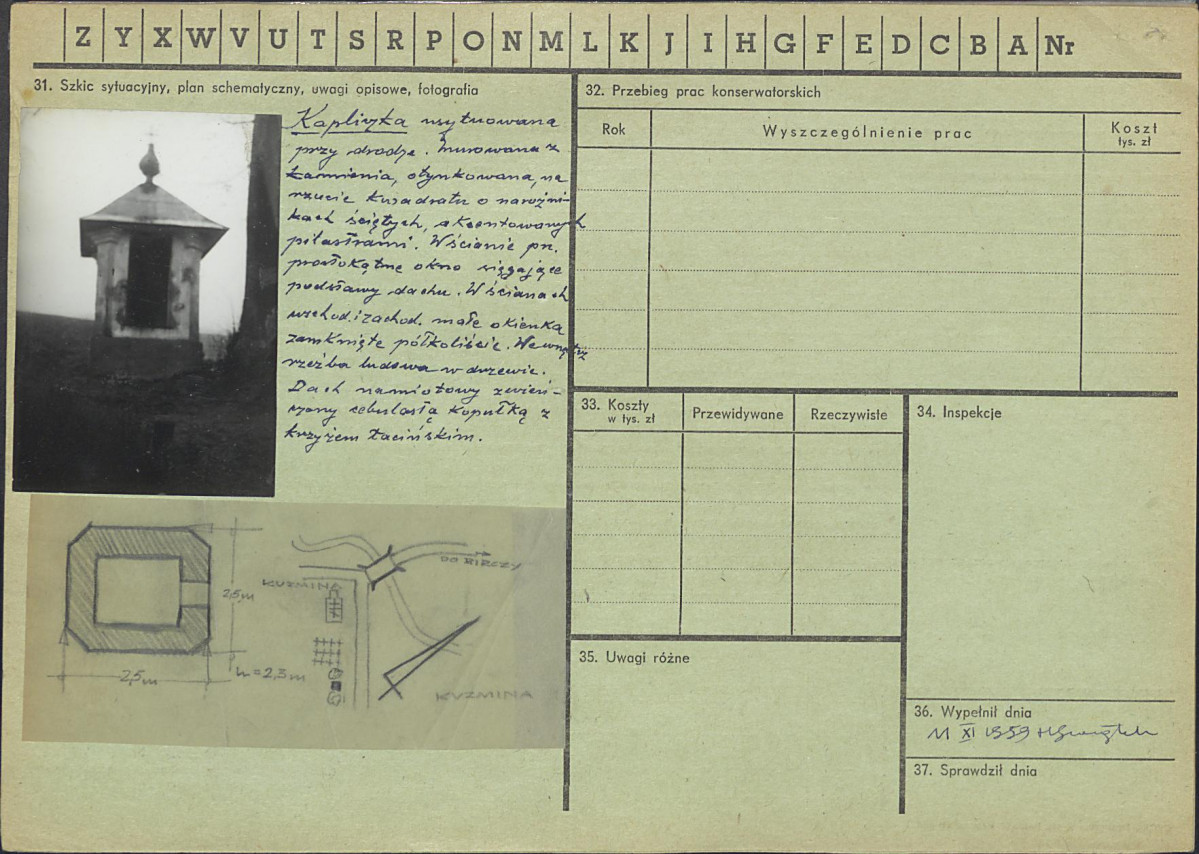 Z Y X W V U T S R P O N M L K J I H G F E D C B A Nr
31. Szkic sytuacyjny, plan schematyczny, uwagi opisowe, fotografia
Kapliczka usytuowana
przy drodze. Murowana z
kamienia, otynkowana, na
rzucie kwadratu o narożni-
kach ściętych, akcentowanych
pilastrami. W ścianie pn.
prostokątne okno sięgające
podstawy dachu. W ścianach
wschod. i zachod. małe okienka
zamknięte półkoliście. Wewnątrz
rzeźba ludowa w drzewie.
Dach namiotowy zwień-
czony cebulastą kopułką z
krzyżem łacińskim.
2,5m
2,5m
h=2,3m
KUZMINA
DO BIRCZY
KUZMINA
32. Przebieg prac konserwatorskich
Rok
Wyszczególnienie prac
Koszt
tys. zł
33. Koszty
w tys. zł
Przewidywane
Rzeczywiste
34. Inspekcje
35. Uwagi różne
36. Wypełnił dnia
11 XI 1959
37. Sprawdził dnia